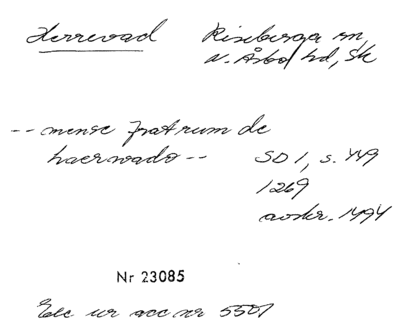 Herrevad Riseberga sn
N. Åsbo hd, Sk
-- mense fratrum de
haerwado -- SD 1, s. 449
1269
avskr. 1494
Nr 23085
Exc ur acc nr 5501